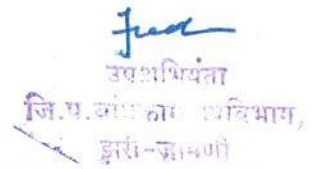 उपअभियंता
जि.प. बांधकाम उपविभाग,
झरी-जामणी